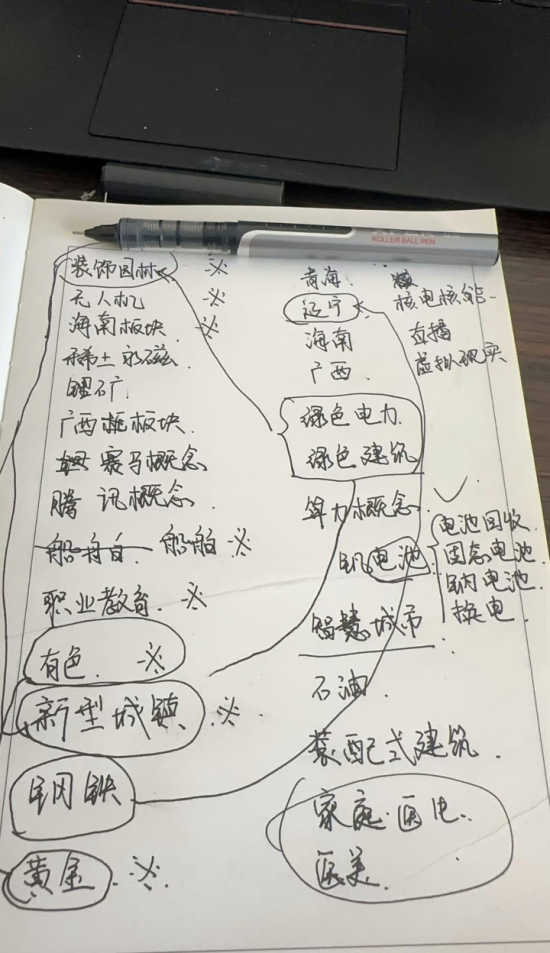 ROLLER BALL PEN
装饰园林 ※
无人机 ※
海南板块 ※
稀土永磁
锂矿
广西板块
赛马概念
腾讯概念
船舶 船舶 ※
职业教育 ※
有色 ※
新型城镇 ※
钢铁
黄金 ※
青海
辽宁
海南
广西
绿色电力
绿色建筑
算力概念
钒电池
智慧城市
石油
装配式建筑
家庭医生
医美
核电核能
直播
虚拟现实
电池回收
固态电池
钠电池
换电